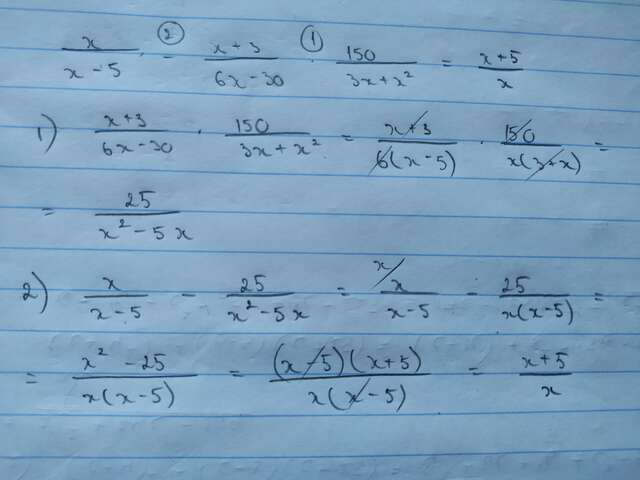 x/(x - 5) ② - (x + 3)/(6x - 30) ① · 150/(3x + x²) = (x + 5)/x
1) (x + 3)/(6x - 30) · 150/(3x + x²) = (x + 3)/(6(x - 5)) · 150/(x(3 + x)) =
= 25/(x² - 5x)
2) x/(x - 5) - 25/(x² - 5x) = x/ x/(x - 5) - 25/(x(x - 5)) =
= (x² - 25)/(x(x - 5)) = ((x - 5)(x + 5))/(x(x - 5)) = (x + 5)/x